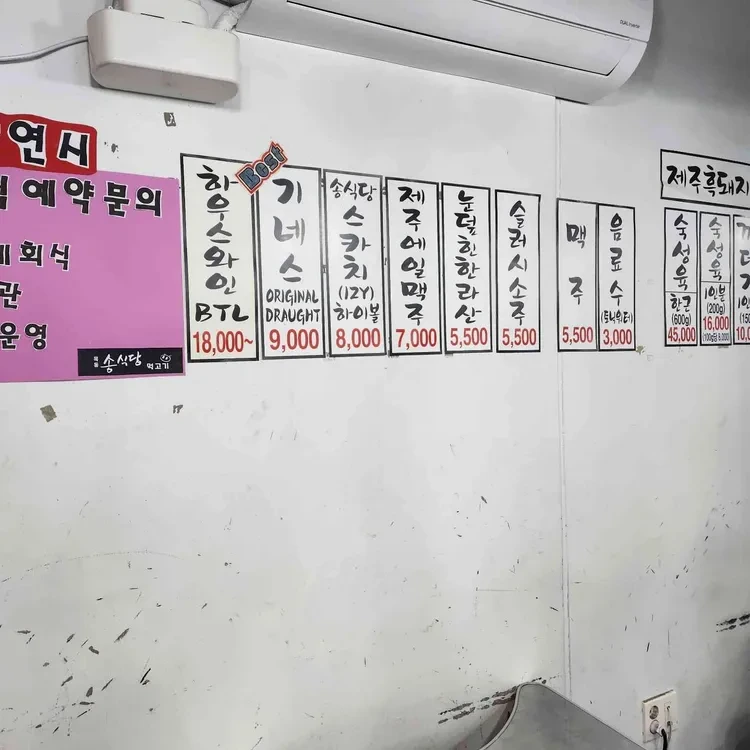 연시
예약문의
회식
관
운영
송식당
먹고기
Best
하우스와인
BTL
18,000~
기네스
ORIGINAL
DRAUGHT
9,000
송식당
스카치
(12Y)
하이볼
8,000
제주에일맥주
7,000
눈덮힌한라산
5,500
슬러시소주
5,500
맥주
5,500
음료수
(토닉워터)
3,000
제주흑돼지
숙성육
한근
(600g)
45,000
숙성육
1인분
(200g)
16,000